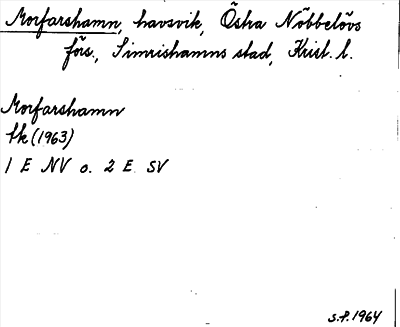 Morfarshamn, havsvik, Östra Nöbbelövs
förs., Simrishamns stad, Krist. l.
Morfarshamn
tk (1963)
1 E NV o. 2 E SV
S.F. 1964